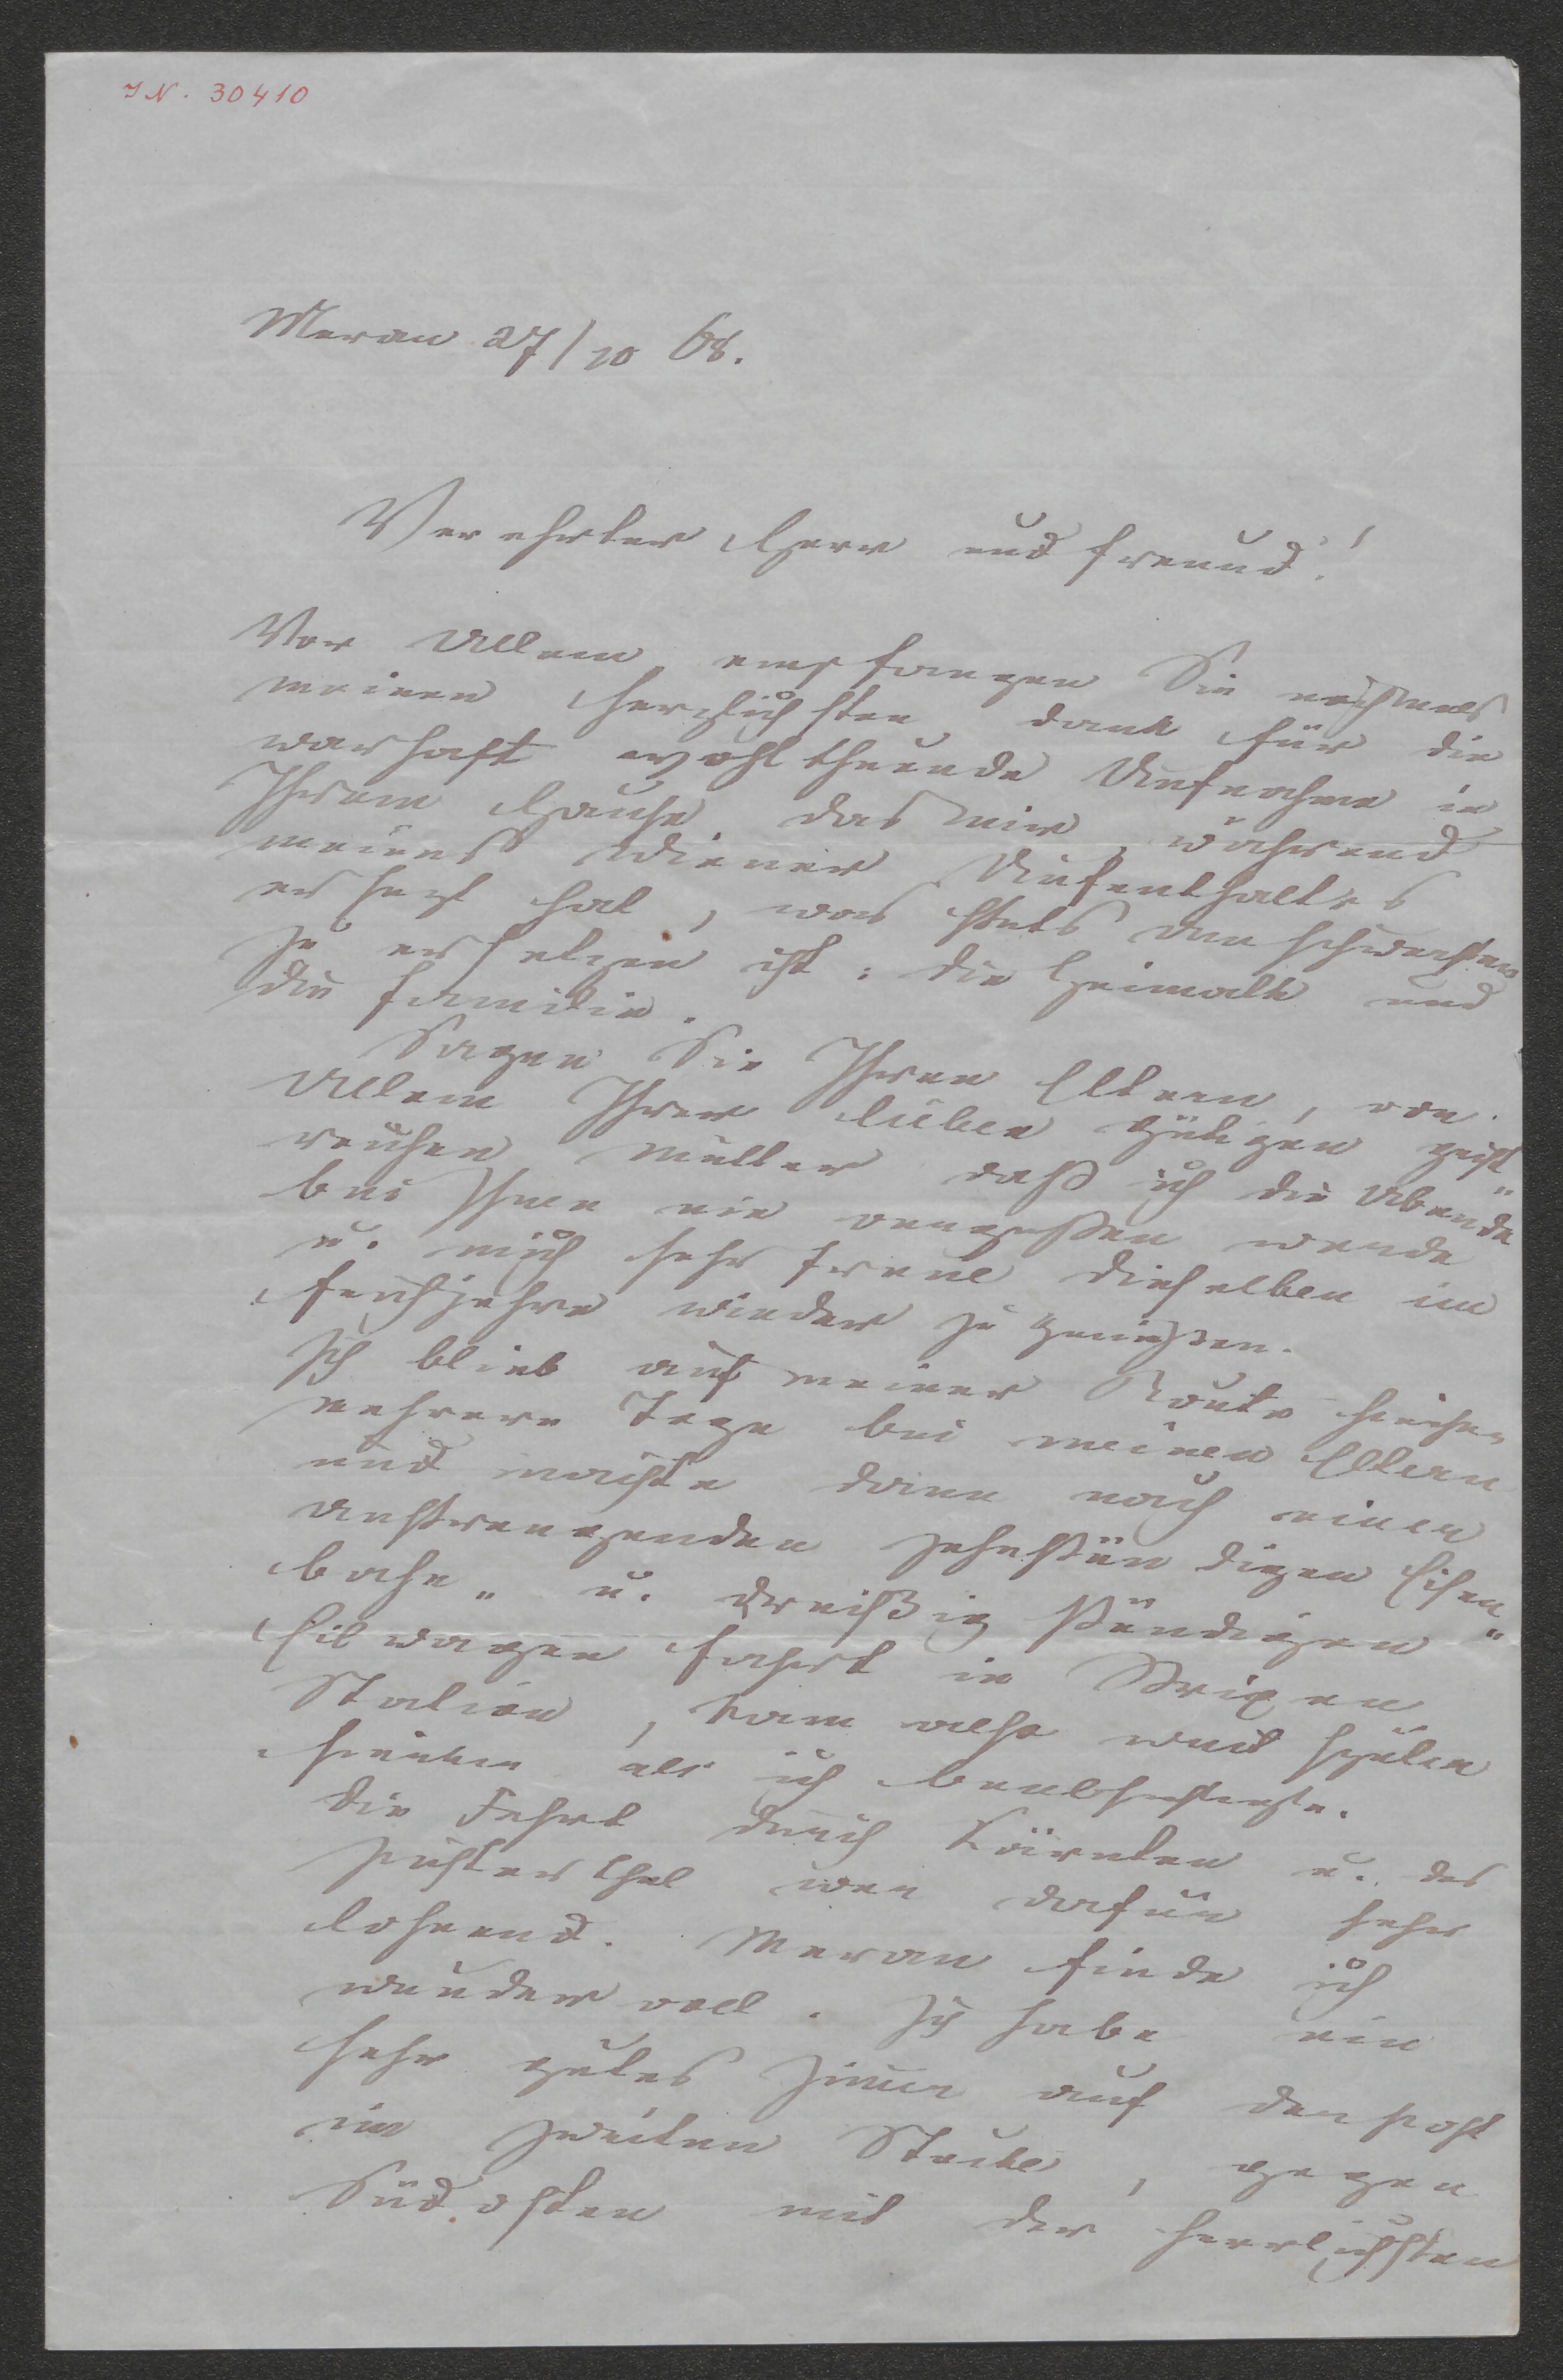 I N. 30410
Meran 27/10 68.
Verehrter Herr und Freund!
Vor Allem empfangen Sie nochmals
meinen herzlichsten Dank für die
warhaft wohlthuende Aufnahme in
Ihrem Hause das mir während
meines Wiener Aufenthaltes
ersezt hat, was stets am schwersten
zu ersetzen ist: die Heimath und
die Familie.
Sagen Sie Ihren Eltern, vor
Allem Ihrer lieben gütigen geist"
reichen Mutter daß ich die Abende
bei Ihnen nie vergeßen werde
u. mich sehr freue dieselben im
Frühjahre wieder zu genießen.
Ich blieb auf meiner Route hieher
mehrere Tage bei meinen Eltern
und machte dann nach einer
anstrengenden zehnstündigen Eisen"
bahn" u. dreißig stündigen
Eilwagen Fahrt in Brixen
Station, kam also weit später
hierher als ich beabsichtigte.
Die Fahrt durch Kärnten u. das
Pusterthal war dafür sehr
lohnend. Meran finde ich
wundervoll. Ich habe ein
sehr gutes Zimmer auf der Post
im zweiten Stocke, gegen
Südosten mit der herrlichsten